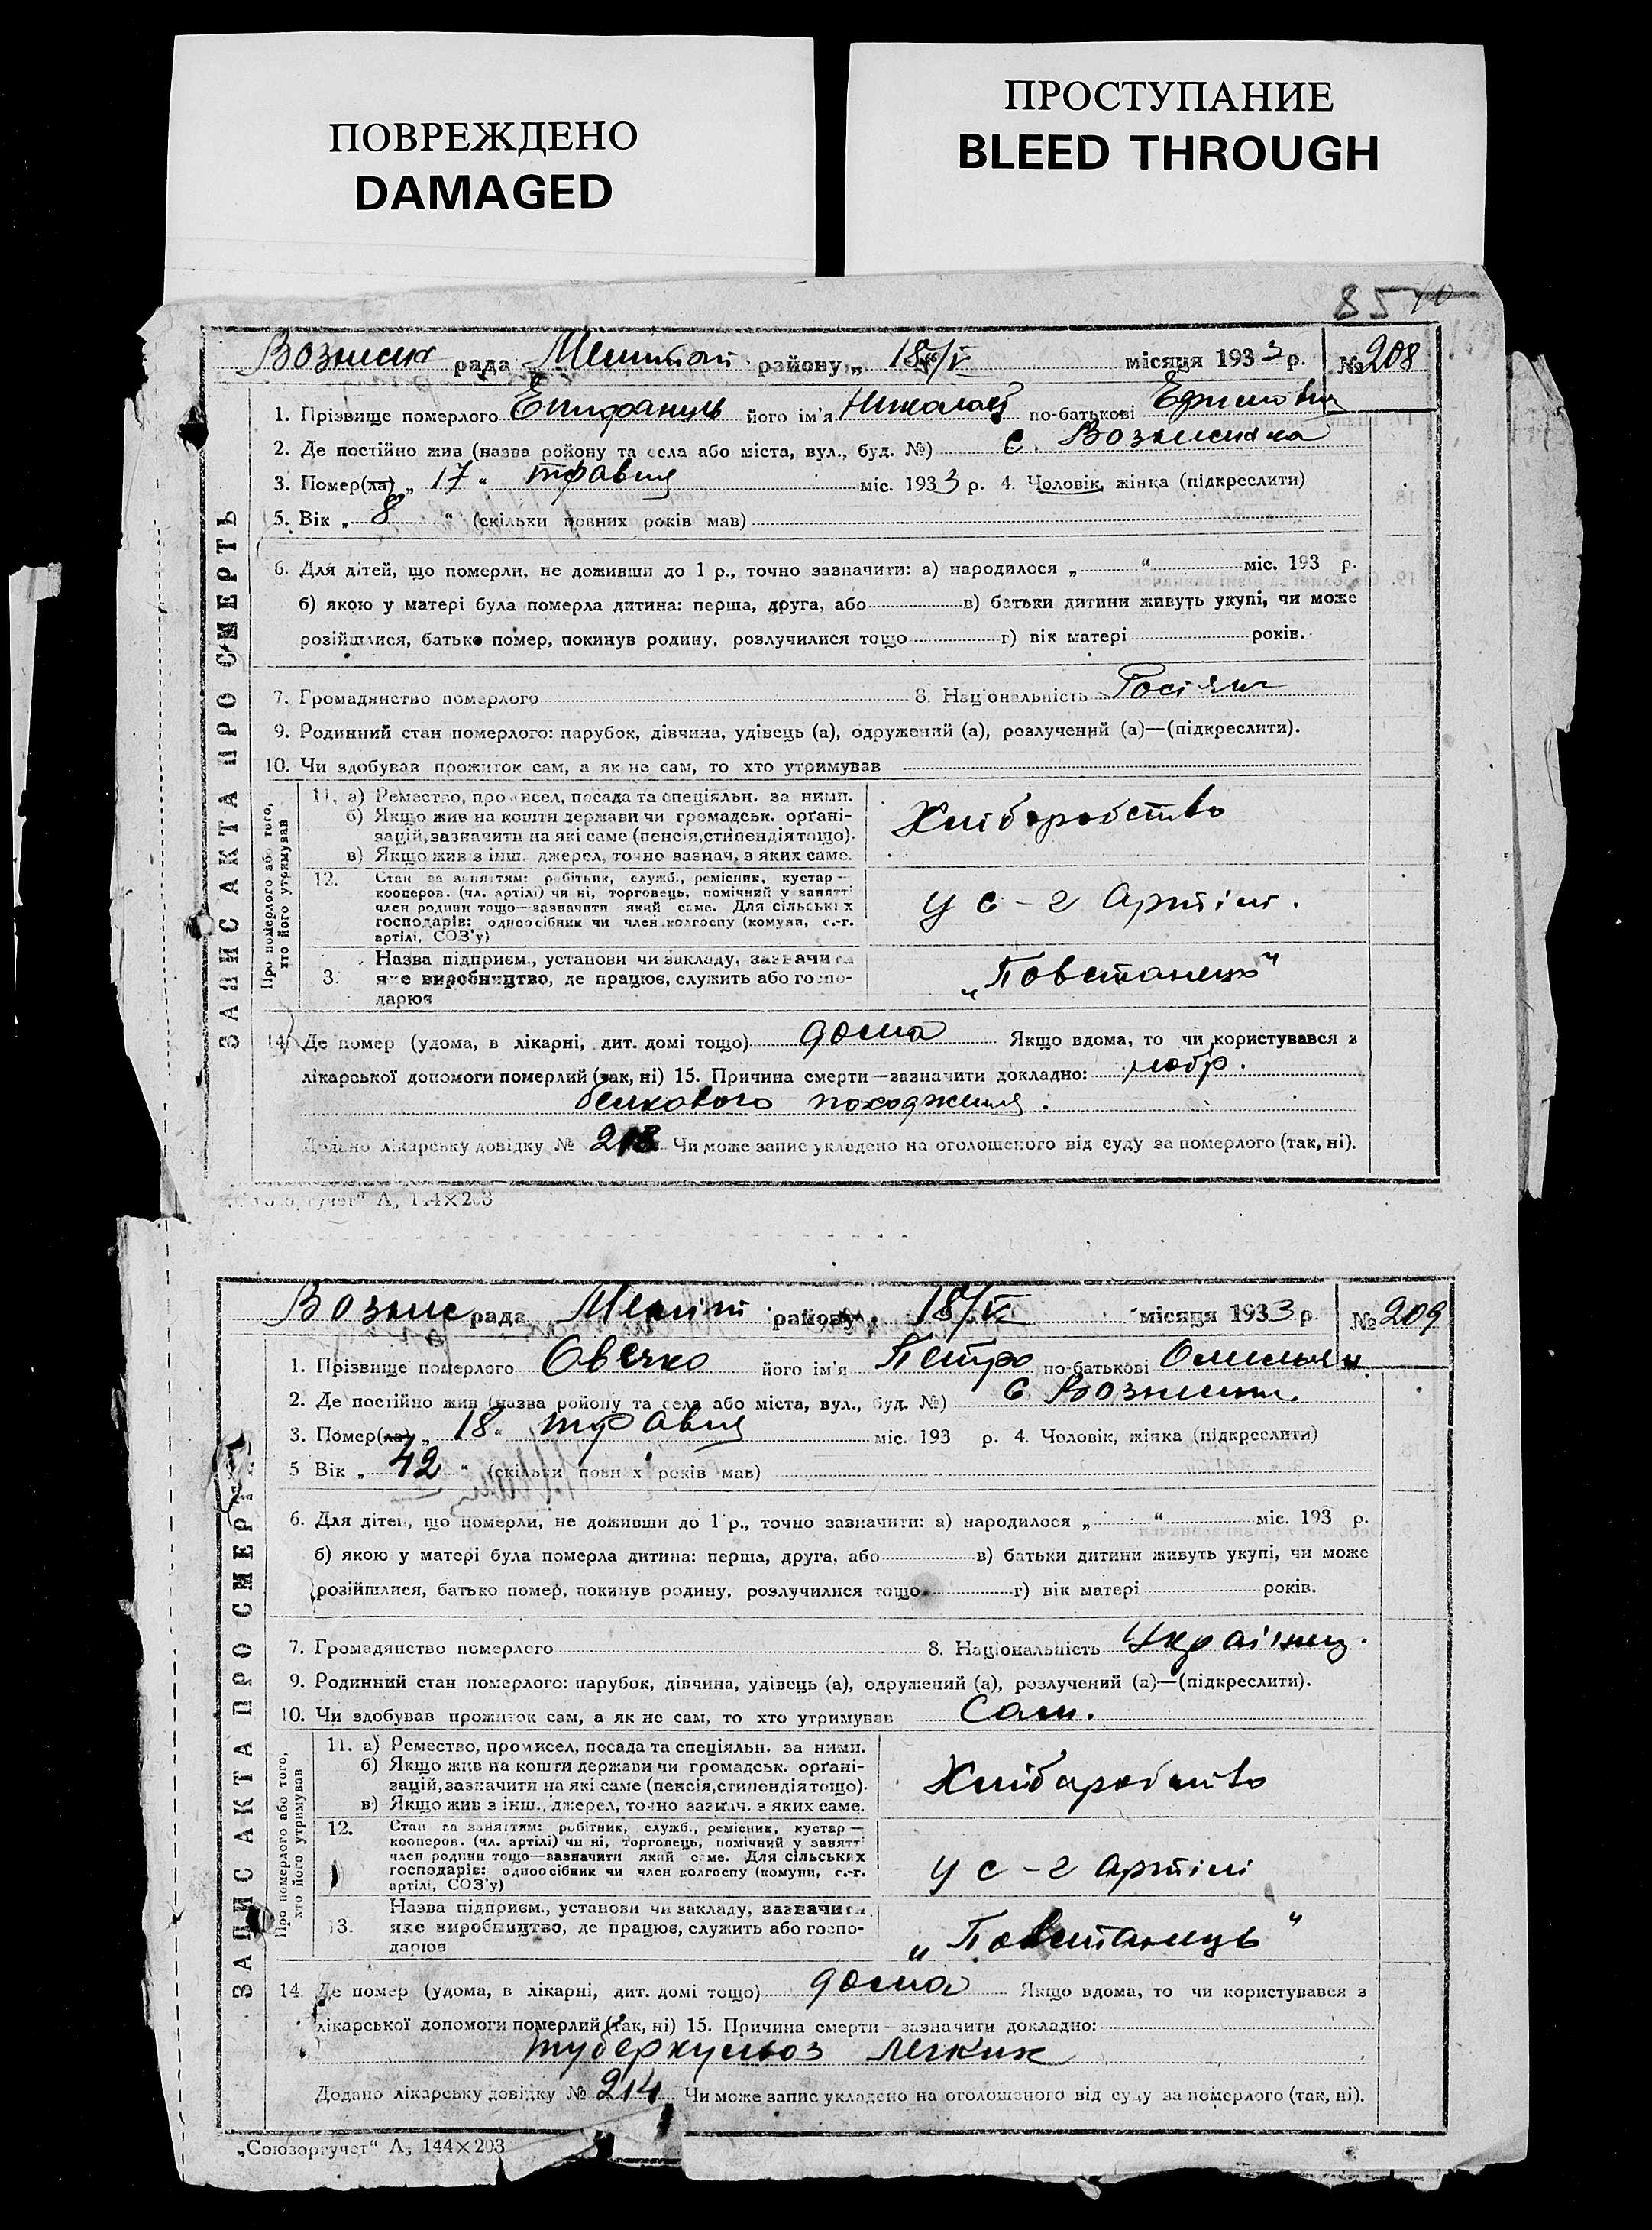 ПОВРЕЖДЕНО
DAMAGED
ПРОСТУПАНИЕ
BLEED THROUGH
85
рада района „ 18/V місяця 1933 р. № 208
1. Прізвище померлого Епифанцъ його ім'я Николай по-батькові
2. Де постійно жив (назва району та села або міста, вул., буд. №) с.
3. Помер(ла) „ 17 “ травня міс. 1933 р. 4. Чоловік, жінка (підкреслити)
5. Вік „ 8 “ (скільки повних років мав)
6. Для дітей, що померли, не доживши до 1 р., точно зазначити: а) народилося „ “ міс. 193 р.
б) якою у матері була померла дитина: перша, друга, або в) батьки дитини живуть укупі, чи може
розійшлися, батько помер, покинув родину, розлучилися тощо г) вік матері років.
7. Громадянство померлого 8. Національність Росіян
9. Родинний стан померлого: парубок, дівчина, удівець (а), одружений (а), розлучений (а)—(підкреслити).
10. Чи здобував прожиток сам, а як не сам, то хто утримував
ЗАПИС АКТА ПРО СМЕРТЬ
Про померлого або того,
хто його утримував
11. а) Ремество, промисел, посада та спеціяльн. за ними.
б) Якщо жив на кошти держави чи громадськ. орґані-
зацій, зазначити на які саме (пенсія, стипендія тощо).
в) Якщо жив з інш. джерел, точно зазнач. з яких саме.
Хліборобство
12. Стан за заняттям: робітник, служб., ремісник, кустар—
кооперов. (чл. артілі) чи ні, торговець, помічний у занятт
член родини тощо—зазначити який саме. Для сільських
господарів: одноосібник чи член колгоспу (комуни, с.-г.
артілі, СОЗ'у)
у с-г артіли.
3. Назва підприєм., установи чи закладу, зазначити
яке виробництво, де працює, служить або госпо-
дарює
„Повстанець“
14. Де помер (удома, в лікарні, дит. домі тощо) дома Якщо вдома, то чи користувався з
лікарської допомоги померлий (так, ні) 15. Причина смерти—зазначити докладно:
белкового походження.
Додано лікарську довідку № Чи може запис укладено на оголошеного від суду за померлого (так, ні).
„Союзоргучет“ А₅ 144×203
Вознис рада Меліт району „ 18/V місяця 1933 р. № 209
1. Прізвище померлого Овечко його ім'я Петро по-батькові Омельян
2. Де постійно жив (назва району та села або міста, вул., буд. №) с
3. Помер(ла) „ 18 “ травня міс. 193 р. 4. Чоловік, жінка (підкреслити)
5 Вік „ 42 “ (скільки повних років мав)
6. Для дітей, що померли, не доживши до 1 р., точно зазначити: а) народилося „ “ міс. 193 р.
б) якою у матері була померла дитина: перша, друга, або в) батьки дитини живуть укупі, чи може
розійшлися, батько помер, покинув родину, розлучилися тощо г) вік матері років.
7. Громадянство померлого 8. Національність Українец.
9. Родинний стан померлого: парубок, дівчина, удівець (а), одружений (а), розлучений (а)—(підкреслити).
10. Чи здобував прожиток сам, а як не сам, то хто утримував Сам.
ЗАПИС АКТА ПРО СМЕРТЬ
Про померлого або того,
хто його утримував
11. а) Ремество, промисел, посада та спеціяльн. за ними.
б) Якщо жив на кошти держави чи громадськ. орґані-
зацій, зазначити на які саме (пенсія, стипендія тощо).
в) Якщо жив з інш. джерел, точно зазнач. з яких саме.
Хліборобство
12. Стан за заняттям: робітник, служб., ремісник, кустар—
кооперов. (чл. артілі) чи ні, торговець, помічний у занятт
член родини тощо—зазначити який саме. Для сільських
господарів: одноосібник чи член колгоспу (комуни, с.-г.
артілі, СОЗ'у)
у с-г артілі
13. Назва підприєм., установи чи закладу, зазначити
яке виробництво, де працює, служить або госпо-
дарює
„Повстанець“
14. Де помер (удома, в лікарні, дит. домі тощо) дома Якщо вдома, то чи користувався з
лікарської допомоги померлий (так, ні) 15. Причина смерти—зазначити докладно:
туберкульоз легких
Додано лікарську довідку № 214 Чи може запис укладено на оголошеного від суду за померлого (так, ні).
„Союзоргучет“ А₅ 144×203